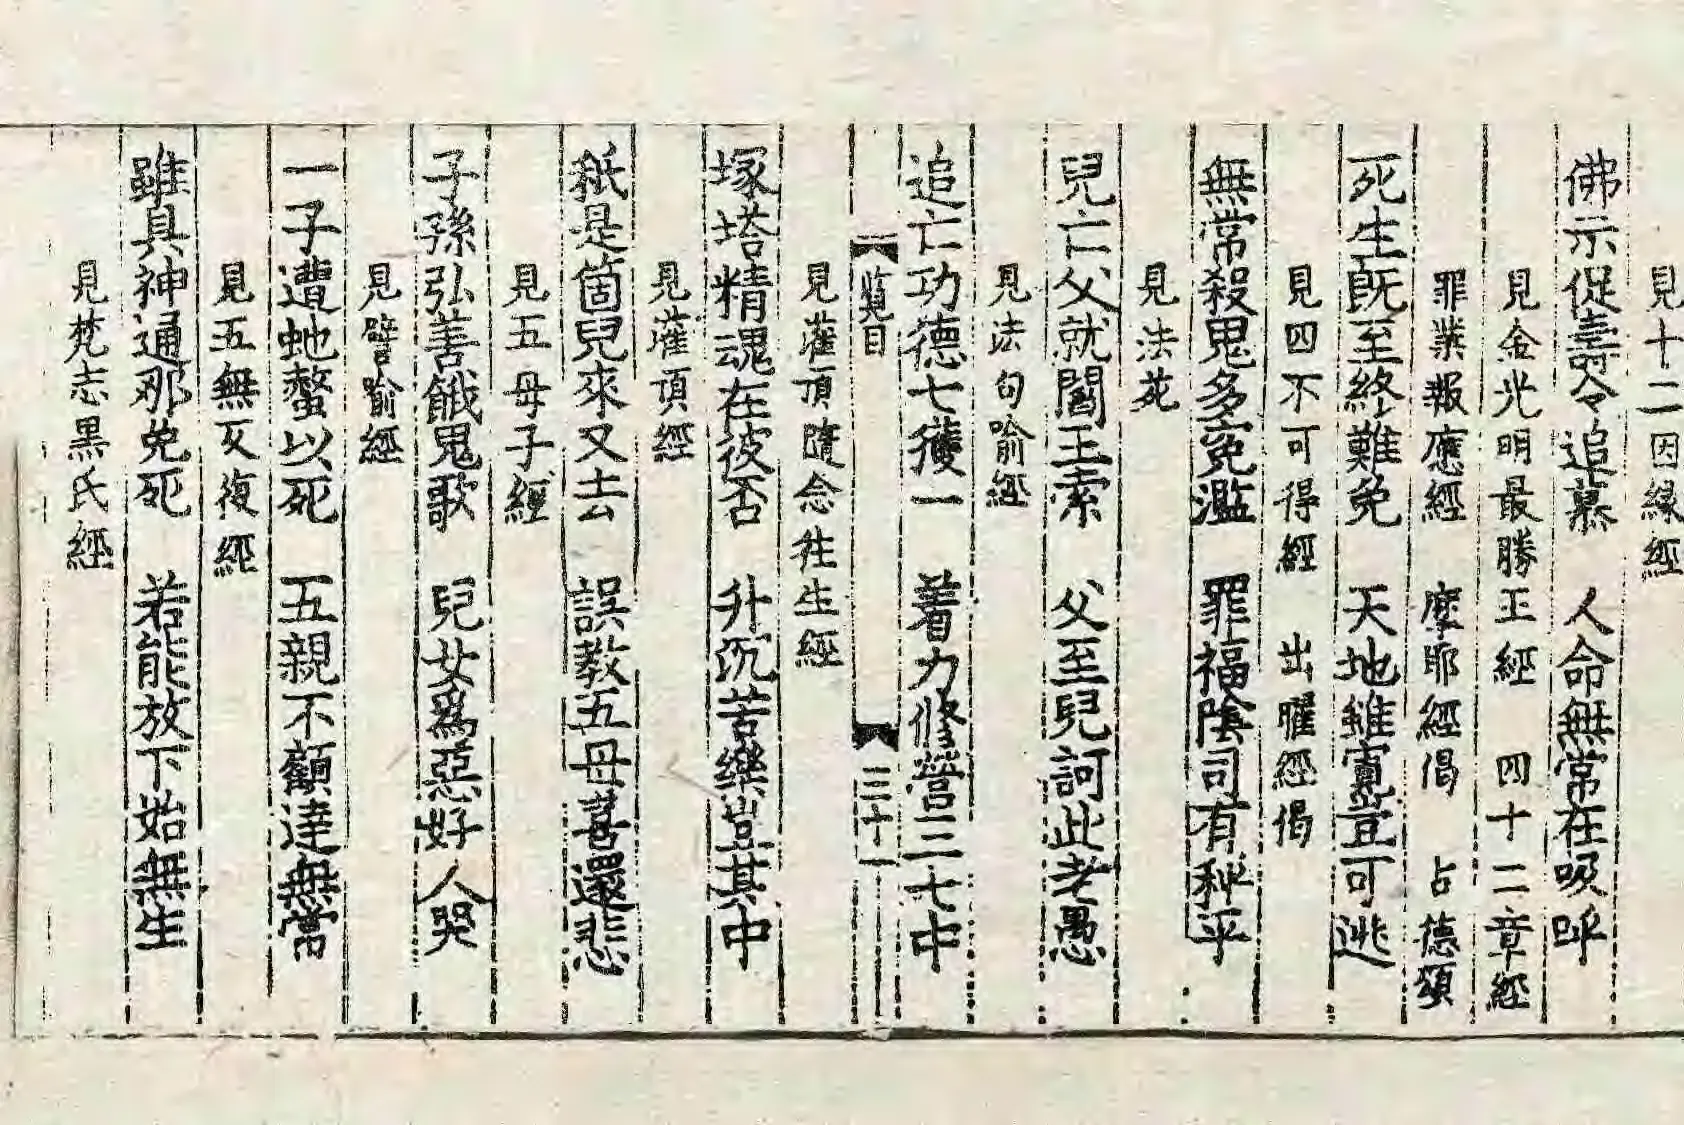 見十二因緣經
佛示促壽令追慕　人命無常在吸呼
見金光明最勝王經　四十二章經
罪業報應經　摩耶經偈　占德頌
死生既至終難免　天地雖寬豈可逃
見四不可得經　出曜經偈
無常殺鬼多冤濫　罪福陰司有秤平
見法苑
兒亡父就閻王索　父至兒訶此老愚
見法句喻經
追亡功德七獲一　着力修營三七中
見灌頂隨念往生經
覧目　三十一
塚塔精魂在彼否　升沉苦樂豈其中
見灌頂經
秖是箇兒來又去　誤教五母喜還悲
見五母子經
子孫弘善餓鬼歌　兒女爲惡好人哭
見譬喻經
一子遭虵螫以死　五親不顧達無常
見五無反復經
雖具神通那免死　若能放下始無生
見梵志黑氏經